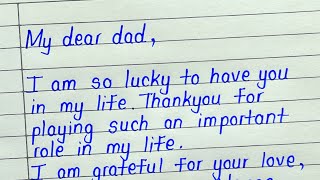 My dear dad,
I am so lucky to have you
in my life. Thankyou for
playing such an important
role in my life.
I am grateful for your love,